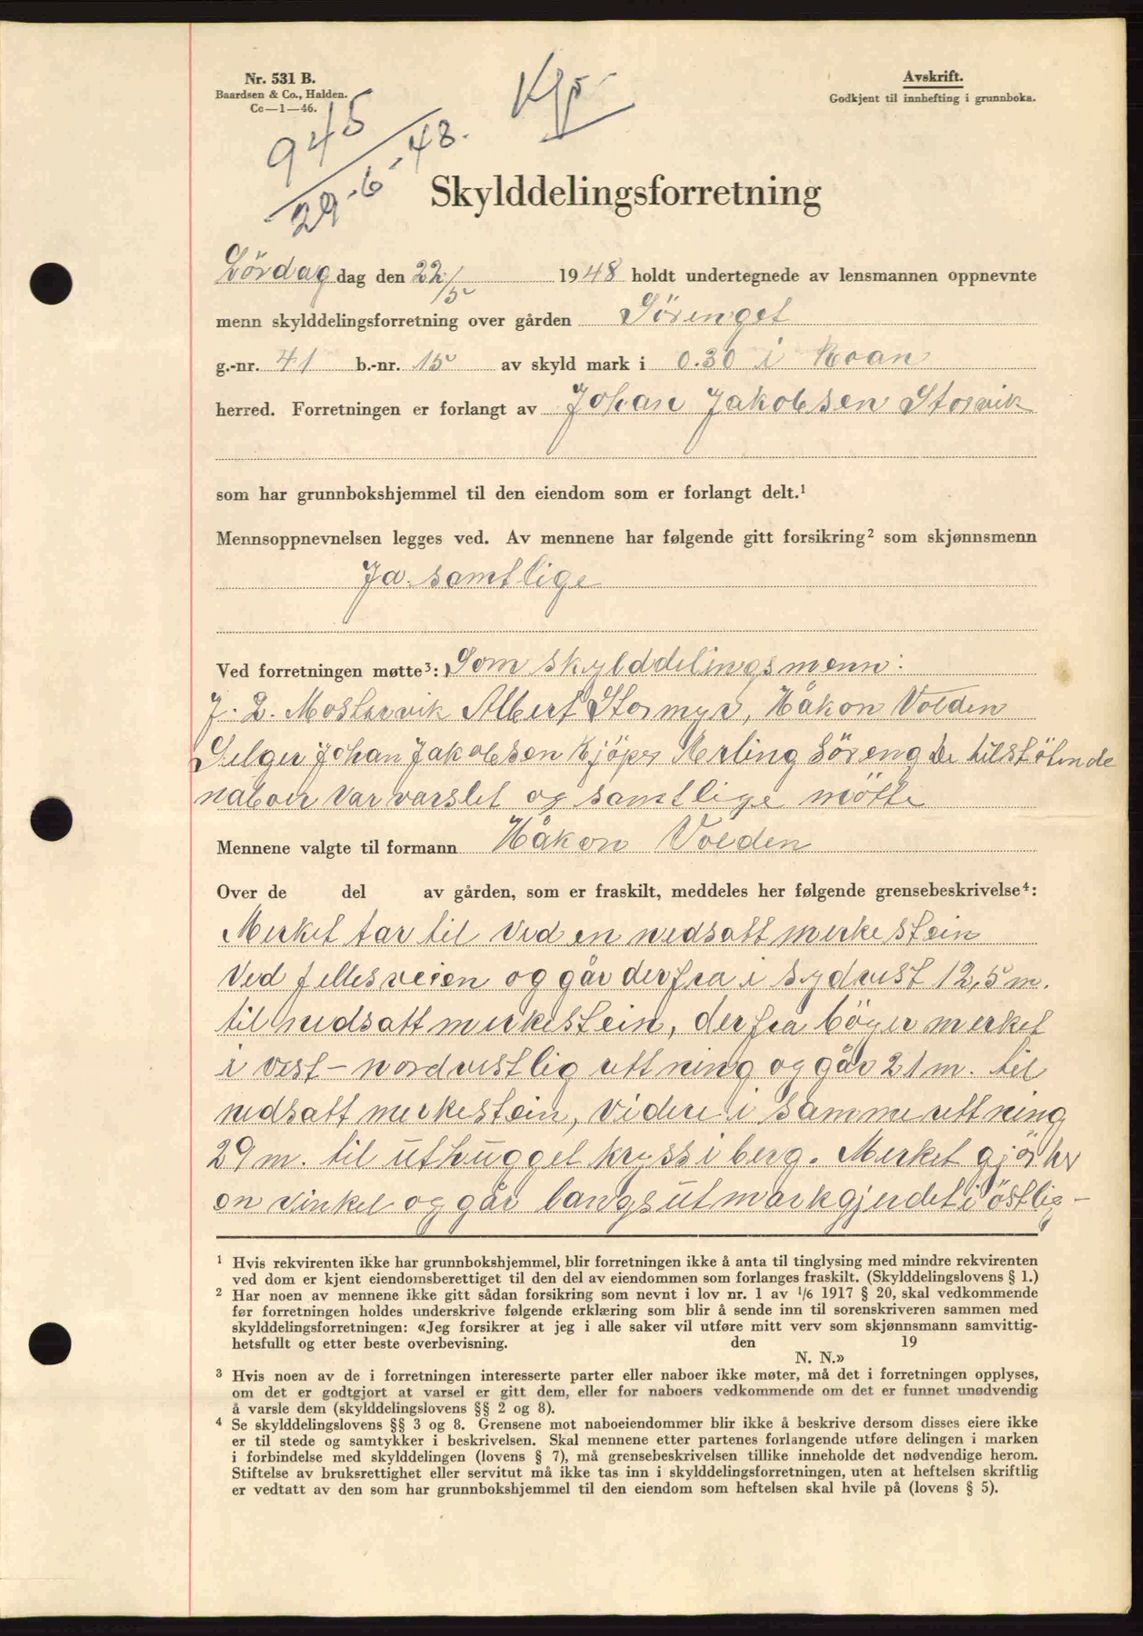 Nr. 531 B.
Baardsen & Co., Halden.
Cc—1—46.
Avskrift.
Godkjent til innhefting i grunnboka.
945
29.-6-48.
Skylddelingsforretning
Lördag dag den 22/5 1948 holdt undertegnede av lensmannen oppnevnte
menn skylddelingsforretning over gården Sörenget
g.-nr. 41 b.-nr. 15 av skyld mark i 0.30 i Roan
herred. Forretningen er forlangt av Johan Jakobsen Storvik
som har grunnbokshjemmel til den eiendom som er forlangt delt.¹
Mennsoppnevnelsen legges ved. Av mennene har følgende gitt forsikring² som skjønnsmenn
Ja. samtlige
Ved forretningen møtte³: Som skylddelingsmenn:
J. L. Mostervik Albert Stormyr, Håkon Volden
Selger Johan Jakobsen Kjöper Merling Söreng De tilstötende
naboer var varslet og samtlige mötte
Mennene valgte til formann Håkon Volden
Over de del av gården, som er fraskilt, meddeles her følgende grensebeskrivelse⁴:
Merket tar til ved en nedsatt merkestein
ved fellesveien og går derfra i sydvest 12,5 m.
til nedsatt merkestein, derfra böyer merket
i vest-nordvestlig rettning og går 21 m. til
nedsatt merkestein, videre i samme rettning
29 m. til uthugget kryss i berg. Merket gjör her
en vinkel og går langs utmarkgjerdet i östlig-
¹ Hvis rekvirenten ikke har grunnbokshjemmel, blir forretningen ikke å anta til tinglysing med mindre rekvirenten
ved dom er kjent eiendomsberettiget til den del av eiendommen som forlanges fraskilt. (Skylddelingslovens § 1.)
² Har noen av mennene ikke gitt sådan forsikring som nevnt i lov nr. 1 av 1/6 1917 § 20, skal vedkommende
før forretningen holdes underskrive følgende erklæring som blir å sende inn til sorenskriveren sammen med
skylddelingsforretningen: «Jeg forsikrer at jeg i alle saker vil utføre mitt verv som skjønnsmann samvittig-
hetsfullt og etter beste overbevisning. den 19
N. N.»
³ Hvis noen av de i forretningen interesserte parter eller naboer ikke møter, må det i forretningen opplyses,
om det er godtgjort at varsel er gitt dem, eller for naboers vedkommende om det er funnet unødvendig
å varsle dem (skylddelingslovens §§ 2 og 8).
⁴ Se skylddelingslovens §§ 3 og 8. Grensene mot naboeiendommer blir ikke å beskrive dersom disses eiere ikke
er til stede og samtykker i beskrivelsen. Skal mennene etter partenes forlangende utføre delingen i marken
i forbindelse med skylddelingen (lovens § 7), må grensebeskrivelsen tillike inneholde det nødvendige herom.
Stiftelse av bruksrettighet eller servitut må ikke tas inn i skylddelingsforretningen, uten at heftelsen skriftlig
er vedtatt av den som har grunnbokshjemmel til den eiendom som heftelsen skal hvile på (lovens § 5).